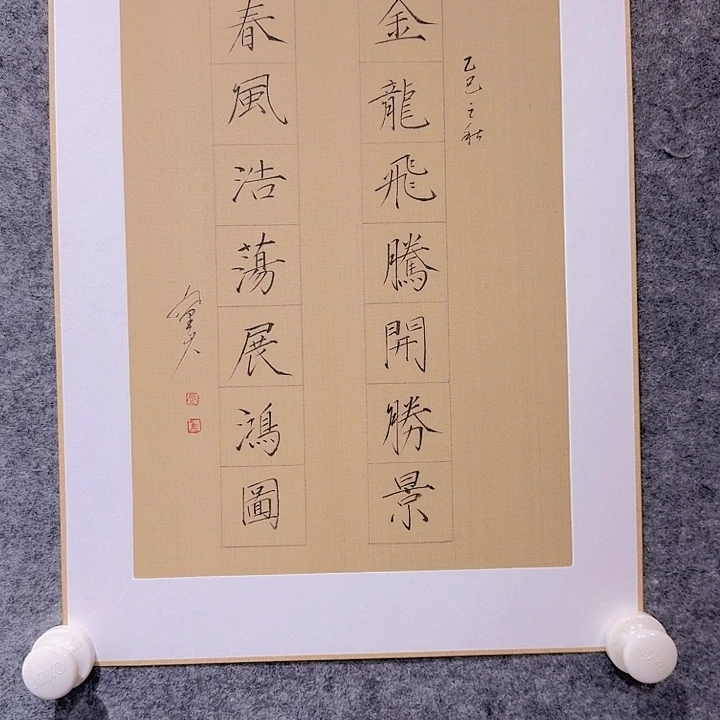 乙巳之秋
金龍飛騰開勝景
春風浩蕩展鴻圖